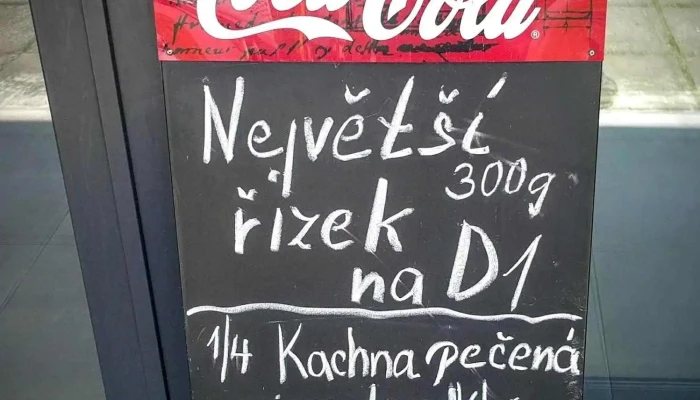 Coca-Cola
Největší
300g
řízek
na D1
1/4 Kachna pečená